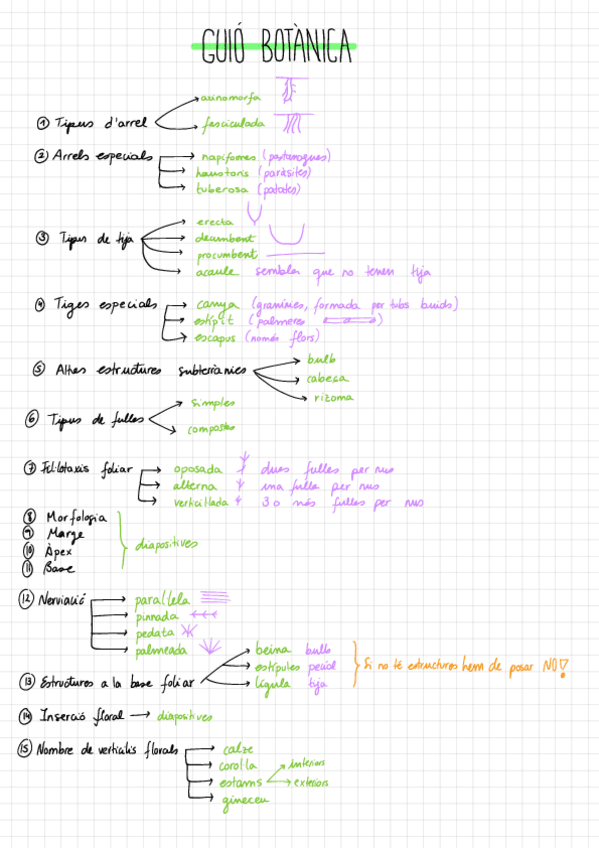 GUIÓ BOTÀNICA
① Tipus d'arrel
axinomorfa
fasciculada
② Arrels especials
napiformes (pastanagues)
haustoris (paràsites)
tuberosa (patates)
③ Tipus de tija
erecta
decumbent
procumbent
acaule sembla que no tenen tija
④ Tiges especials
canya (gramínies, formada per tubs buids)
estípit (palmeres)
escapus (només flors)
⑤ Altres estructures subterrànies
bulb
cabesa
rizoma
⑥ Tipus de fulles
simples
compostes
⑦ Fil·lotaxis foliar
oposada dues fulles per nus
alterna una fulla per nus
verticil·lada 3 o més fulles per nus
⑧ Morfologia
⑨ Marge
⑩ Àpex
⑪ Base
diapositives
⑫ Nerviació
paral·lela
pinnada
pedata
palmeada
⑬ Estructures a la base foliar
beina bulb
estípules peciol
lígula tija
Si no té estructures hem de posar NO!
⑭ Inserció floral → diapositives
⑮ Nombre de verticils florals
calze
corol·la
estams
interiors
exteriors
gineceu